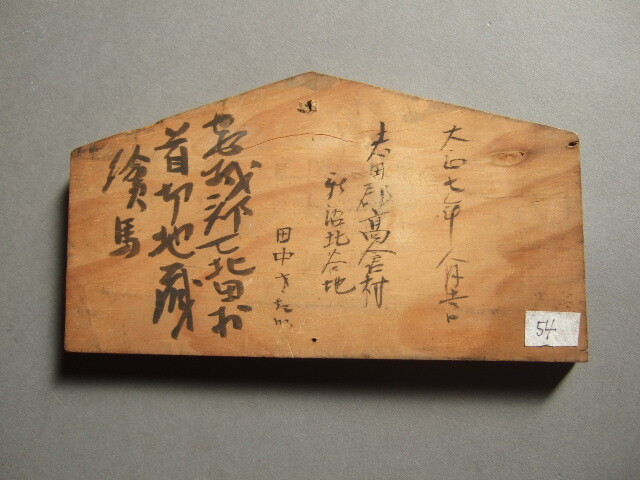 大正七年八月吉日
志田郡高倉村
新沼北谷地
田中
宮城郡七北田村
首切地蔵
繪馬
54